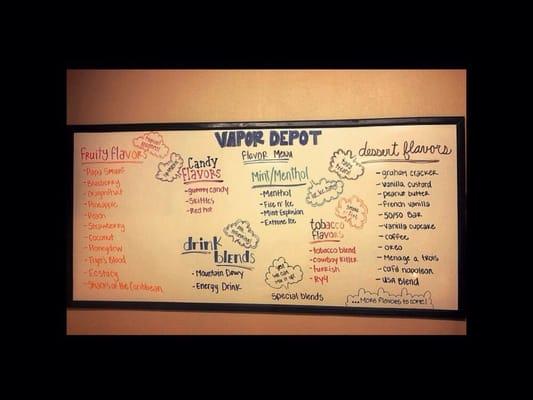 VAPOR DEPOT
Flavor Menu
Fruity Flavors
- Papa Smurf
- Blueberry
- Dragonfruit
- Pineapple
- Peach
- Strawberry
- Coconut
- Honeydew
- Tiger's Blood
- Ecstacy
- Sharks of the Caribbean
Candy
Flavors
- Gummy Candy
- Skittles
- Red Hot
drink
blends
- Mountain Dewy
- Energy Drink
Mint/Menthol
- Menthol
- Fire n' Ice
- Mint Explosion
- Extreme Ice
tobacco
flavors
- tobacco blend
- Cowboy Killer
- turkish
- RY4
yes!
we can
mix it up!
Special blends
dessert flavors
- graham cracker
- vanilla custard
- peanut butter
- french vanilla
- 50/50 Bar
- vanilla cupcake
- coffee
- oreo
- Menage a trois
- café napolean
- USA Blend
...More flavors to come!